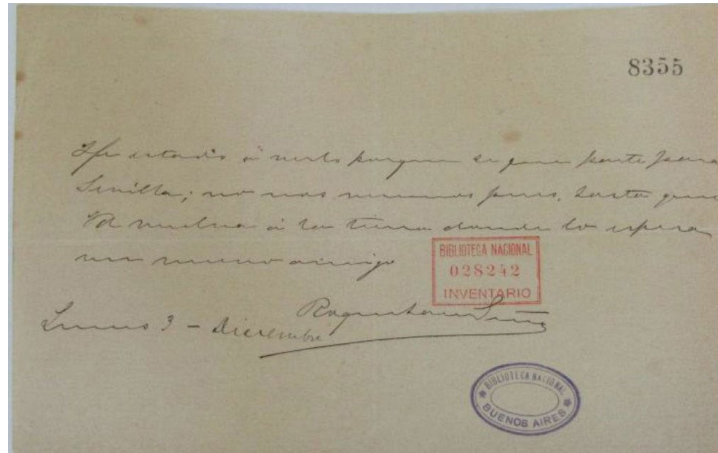 8355
He estado á verlo porque se que parte para
Sevilla; no nos veremos pues, hasta que
Vd vuelva á la tierra donde lo espera
un nuevo amigo
BIBLIOTECA NACIONAL
028242
INVENTARIO
Roque Saenz Peña
Lunes 3 - Diciembre
BIBLIOTECA NACIONAL
BUENOS AIRES